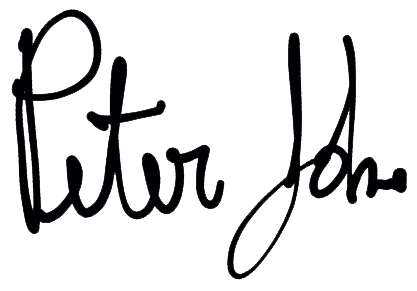 Peter John